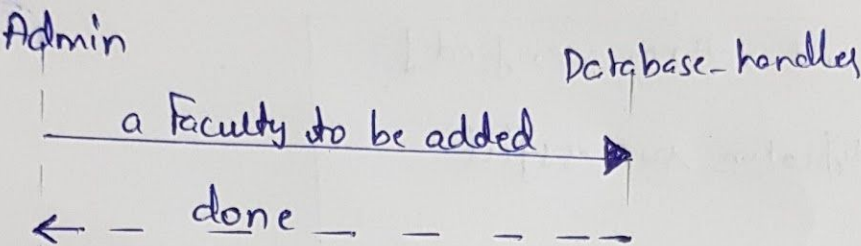 Admin
Database_handler
a Faculty to be added
done